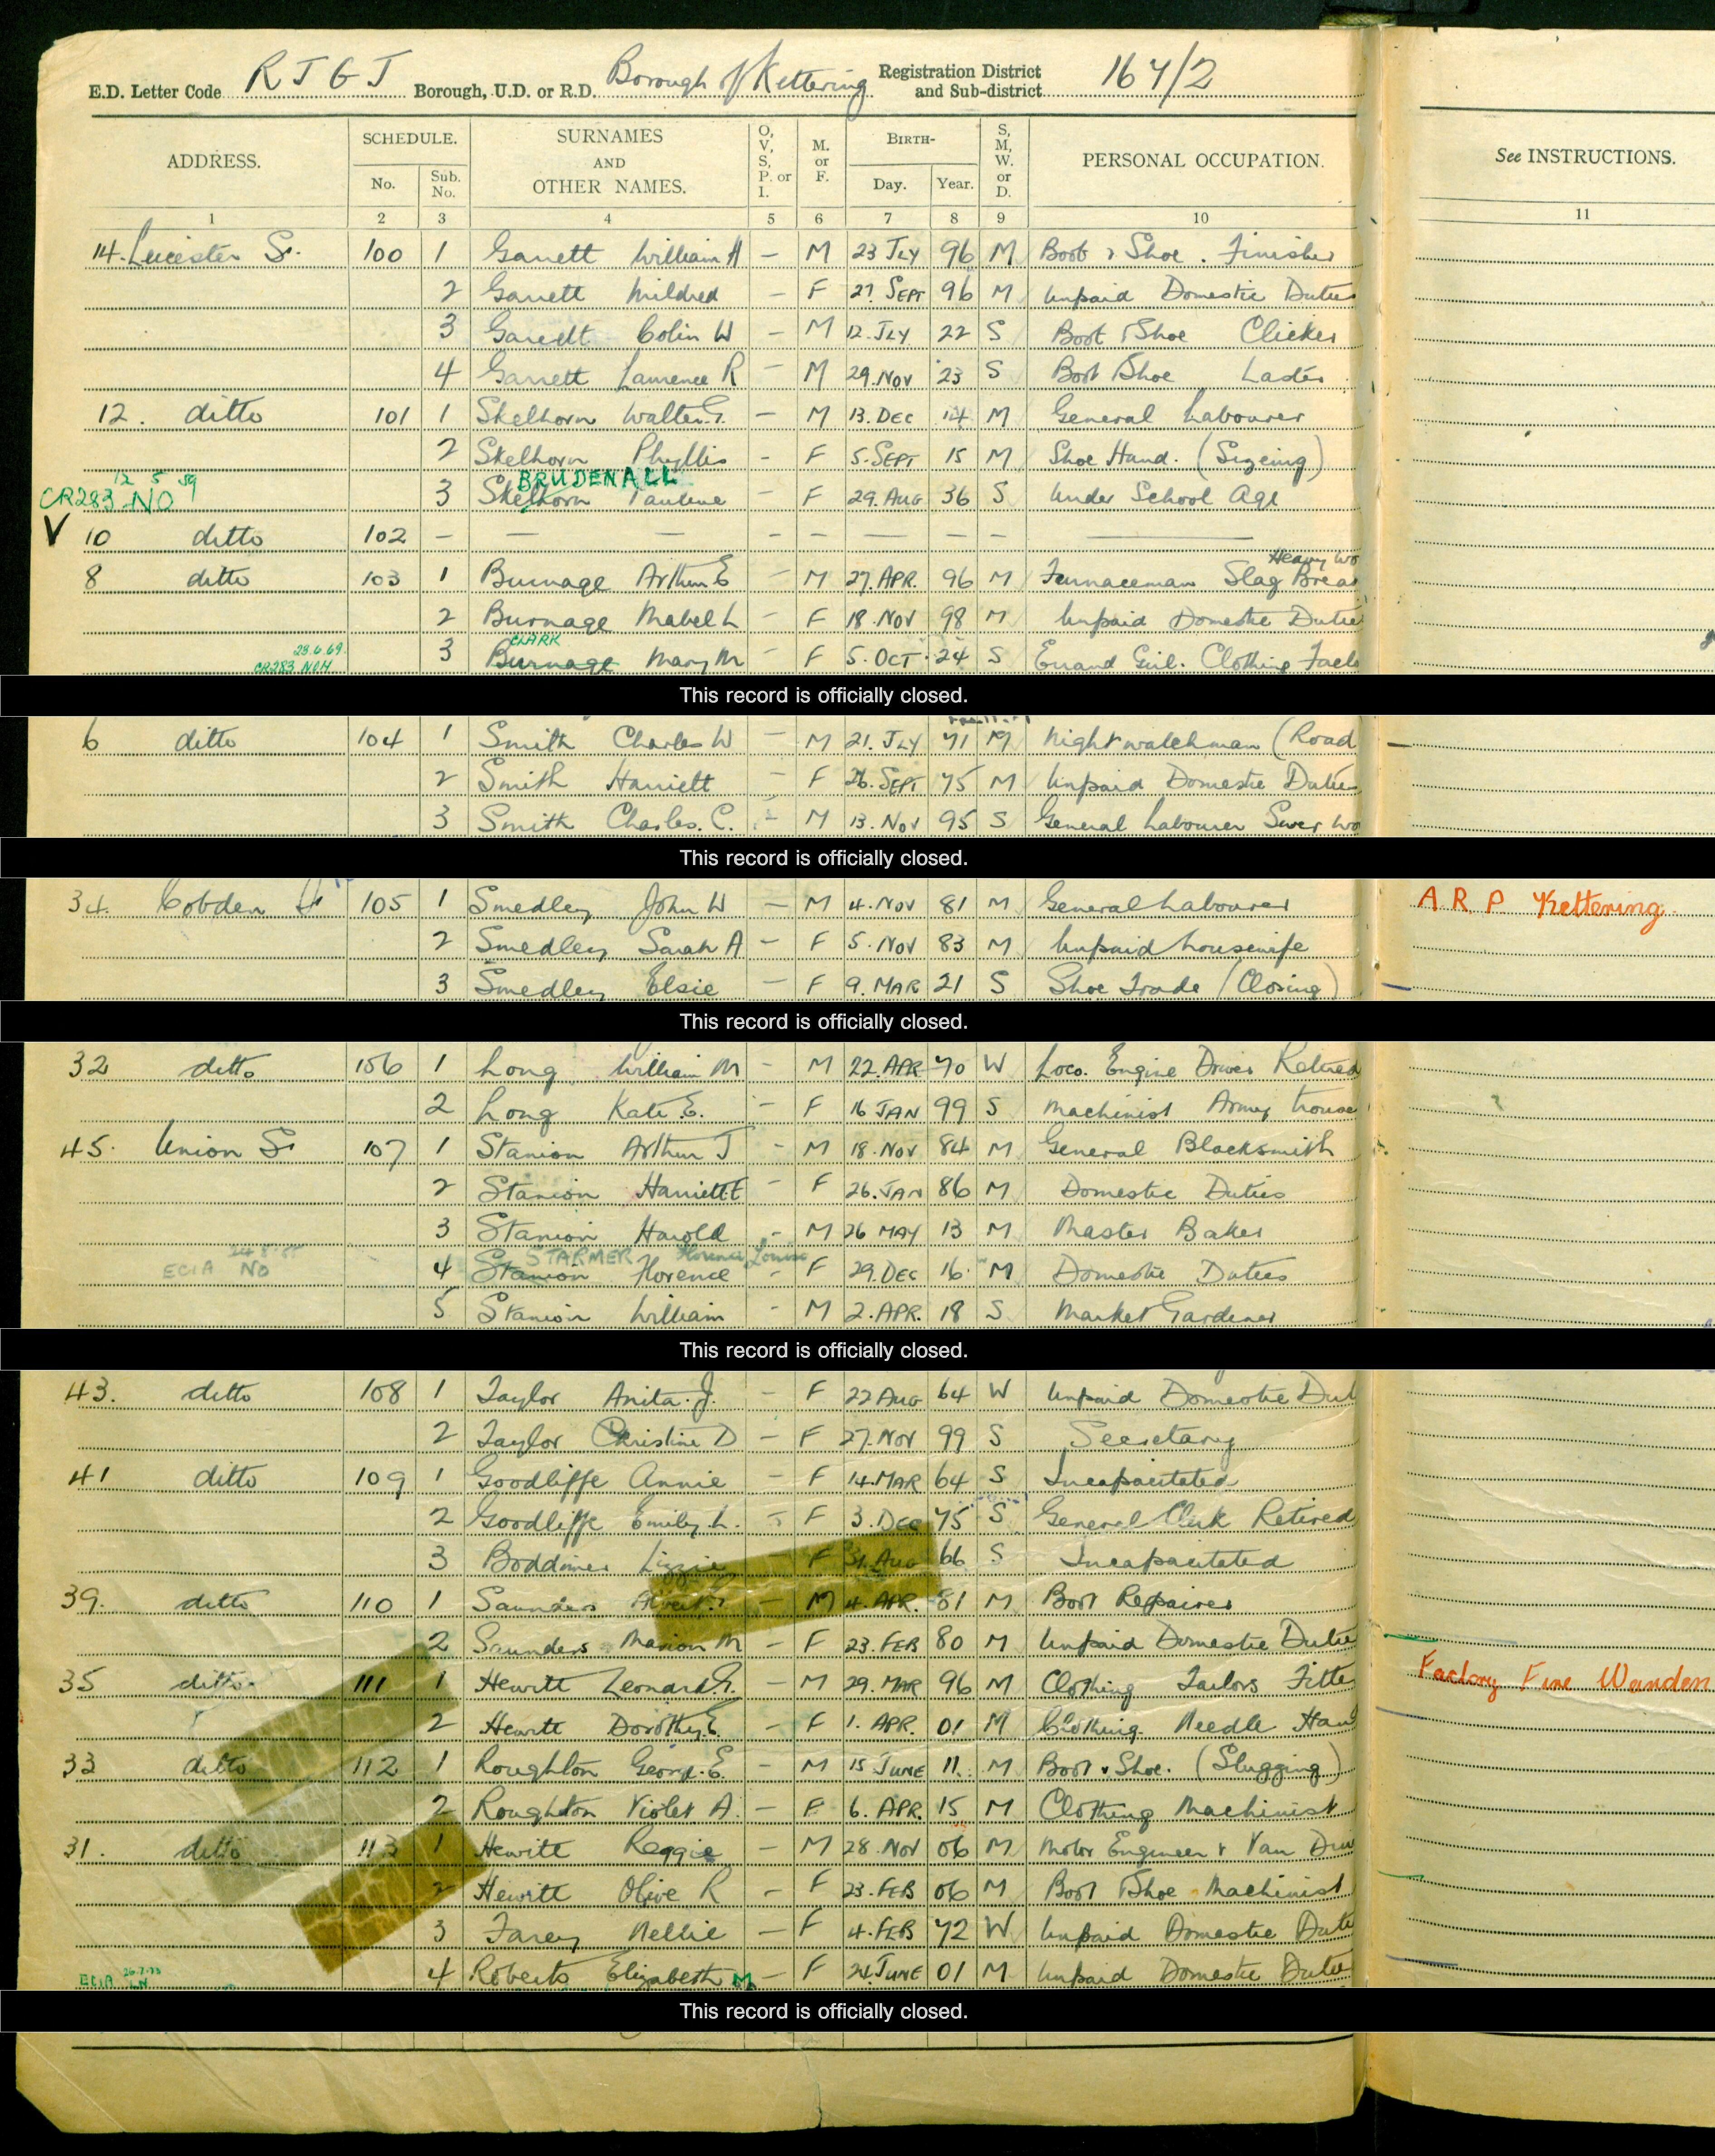 E.D. Letter Code R J G J Borough, U.D. or R.D. Borough of Kettering Registration District and Sub-district 164/2
ADDRESS. SCHEDULE. No. Sub. No. SURNAMES AND OTHER NAMES. O, V, S, P. or I. M. or F. BIRTH- Day. Year. S, M, W. or D. PERSONAL OCCUPATION. See INSTRUCTIONS.
1 2 3 4 5 6 7 8 9 10 11
14. Leicester St. 100 1 Garrett William H – M 23 JLY 96 M Boot & Shoe. Finisher
2 Garrett Mildred – F 27. SEPT 96 M Unpaid Domestic Duties
3 Garrett Colin W – M 12. JLY 22 S Boot & Shoe Clicker
4 Garrett Laurence R – M 29. NOV 23 S Boot & Shoe Laster
12. ditto 101 1 Skelhorn Walter.G. – M 13. DEC 14 M General Labourer
2 Skelhorn Phyllis - F 5. SEPT 15 M Shoe Hand. (Sizeing)
12 5 59
CR283 NO BRUDENALL
3 Skelhorn Pauline – F 29. AUG 36 S Under School Age
V 10 ditto 102 – – – – – – – – –
Heavy Wo
8 ditto 103 1 Burnage Arthur E – M 27. APR. 96 M Furnaceman Slag Brea
2 Burnage Mabel L – F 18. NOV 98 M Unpaid Domestic Duties
23.6.69 CLARK
CR283 NCH 3 Burnage Mary M – F 5. OCT. 24 S Errand Girl. Clothing Facto
This record is officially closed.
6 ditto 104 1 Smith Charles W – M 21. JLY 71 M Night watchman (Road
2 Smith Harriett – F 26. SEPT 75 M Unpaid Domestic Duties
3 Smith Charles. C. M 13. NOV 95 S General Labourer Sewer Wo
This record is officially closed.
34. Cobden St 105 1 Smedley John W – M 4. NOV 81 M General Labourer A R P Kettering.
2 Smedley Sarah A – F 5. NOV 83 M Unpaid housewife
3 Smedley Elsie – F 9. MAR 21 S Shoe Trade (Closing)
This record is officially closed.
32 ditto 106 1 Long William M – M 22. APR 70 W Loco. Engine Driver Retired
2 Long Kate E. – F 16 JAN 99 S Machinist Army trouse
45. Union St 107 1 Stanion Arthur J – M 18. NOV 84 M General Blacksmith
2 Stanion Harriett E – F 26. JAN 86 M Domestic Duties
3 Stanion Harold – M 26 MAY 13 M Master Baker
STARMER Florence Louise
ECIA NO 4 Stanion Florence – F 29. DEC 16. M Domestic Duties
5 Stanion William - M 2. APR. 18 S Market Gardener
This record is officially closed.
43. ditto 108 1 Taylor Anita. J. – F 22 AUG 64 W Unpaid Domestic Dut
2 Taylor Christine D – F 27. NOV 99 S Secretary
41 ditto 109 1 Goodliffe Annie – F 14. MAR 64 S Incapacitated
2 Goodliffe Emily. L. – F 3. DEC 75 S General Clerk Retired
3 Lizzie F 31. AUG 66 S Incapacitated
39. ditto 110 1 Saunders – M 4. APR. 81 M Boot Repairer
2 Saunders Marion M – F 23. FEB 80 M Unpaid Domestic Duties
35 ditto 111 1 Hewitt Leonard G. – M 29. MAR 96 M Clothing Tailors Fitter Factory Fire Warden
2 Hewitt Dorothy E. – F 1. APR. 01 M Clothing. Needle Hand
33 ditto 112 1 Roughton George. E. – M 15 JUNE 11. M Boot & Shoe. (Slugging)
2 Roughton Violet A. – F 6. APR. 15 M Clothing Machinist
31. ditto 113 1 Hewitt Reggie – M 28 NOV 06 M Motor Engineer & Van Driv
2 Hewitt Olive R – F 23. FEB 06 M Boot & Shoe Machinist
3 Farey Nellie – F 4. FEB 72 W Unpaid Domestic Duties
ECIA 26.7.73 LN. 4 Roberts Elizabeth M – F 24. JUNE 01 M Unpaid Domestic Duties
This record is officially closed.